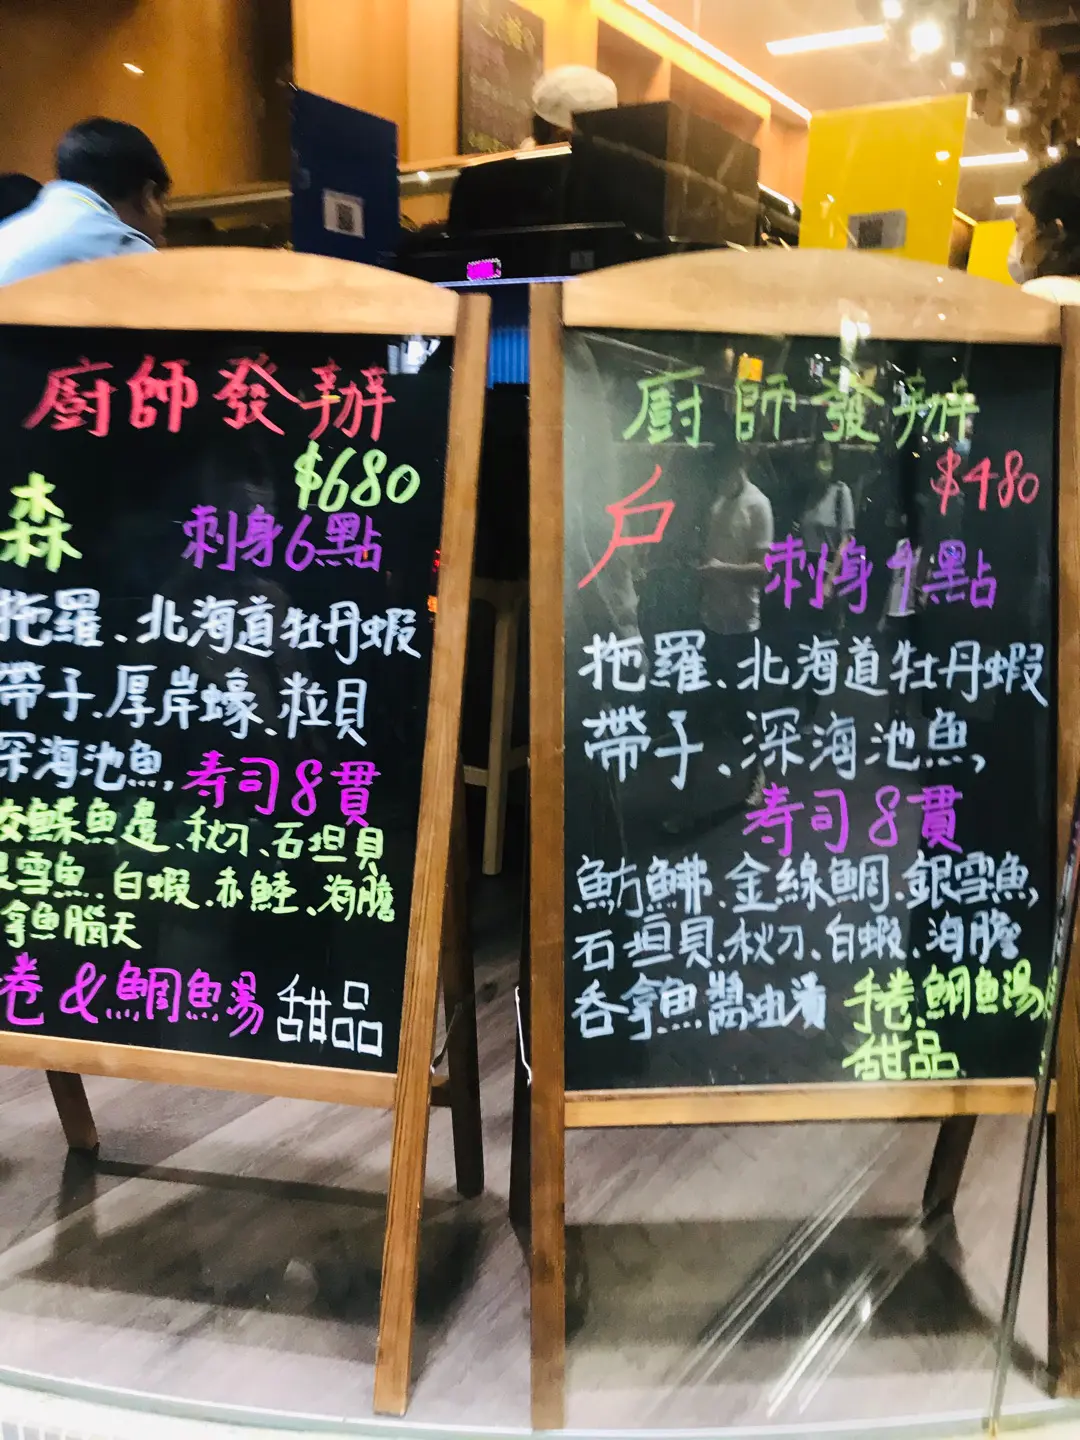 廚師發辦
$680
森 刺身6點
拖羅、北海道牡丹蝦
帶子、厚岸蠔、粒貝
深海池魚,壽司8貫
鰈魚邊、秋刀、石垣貝
雪魚、白蝦、赤鯥、海膽
拿魚腩天
卷&鯛魚湯 甜品
廚師發辦
$480
戶
刺身4點
拖羅、北海道牡丹蝦
帶子、深海池魚,
寿司8貫
魴鮄、金線鯛、銀雪魚,
石垣貝、秋刀、白蝦、海膽
吞拿魚醬油漬 手卷、鯛魚湯
甜品